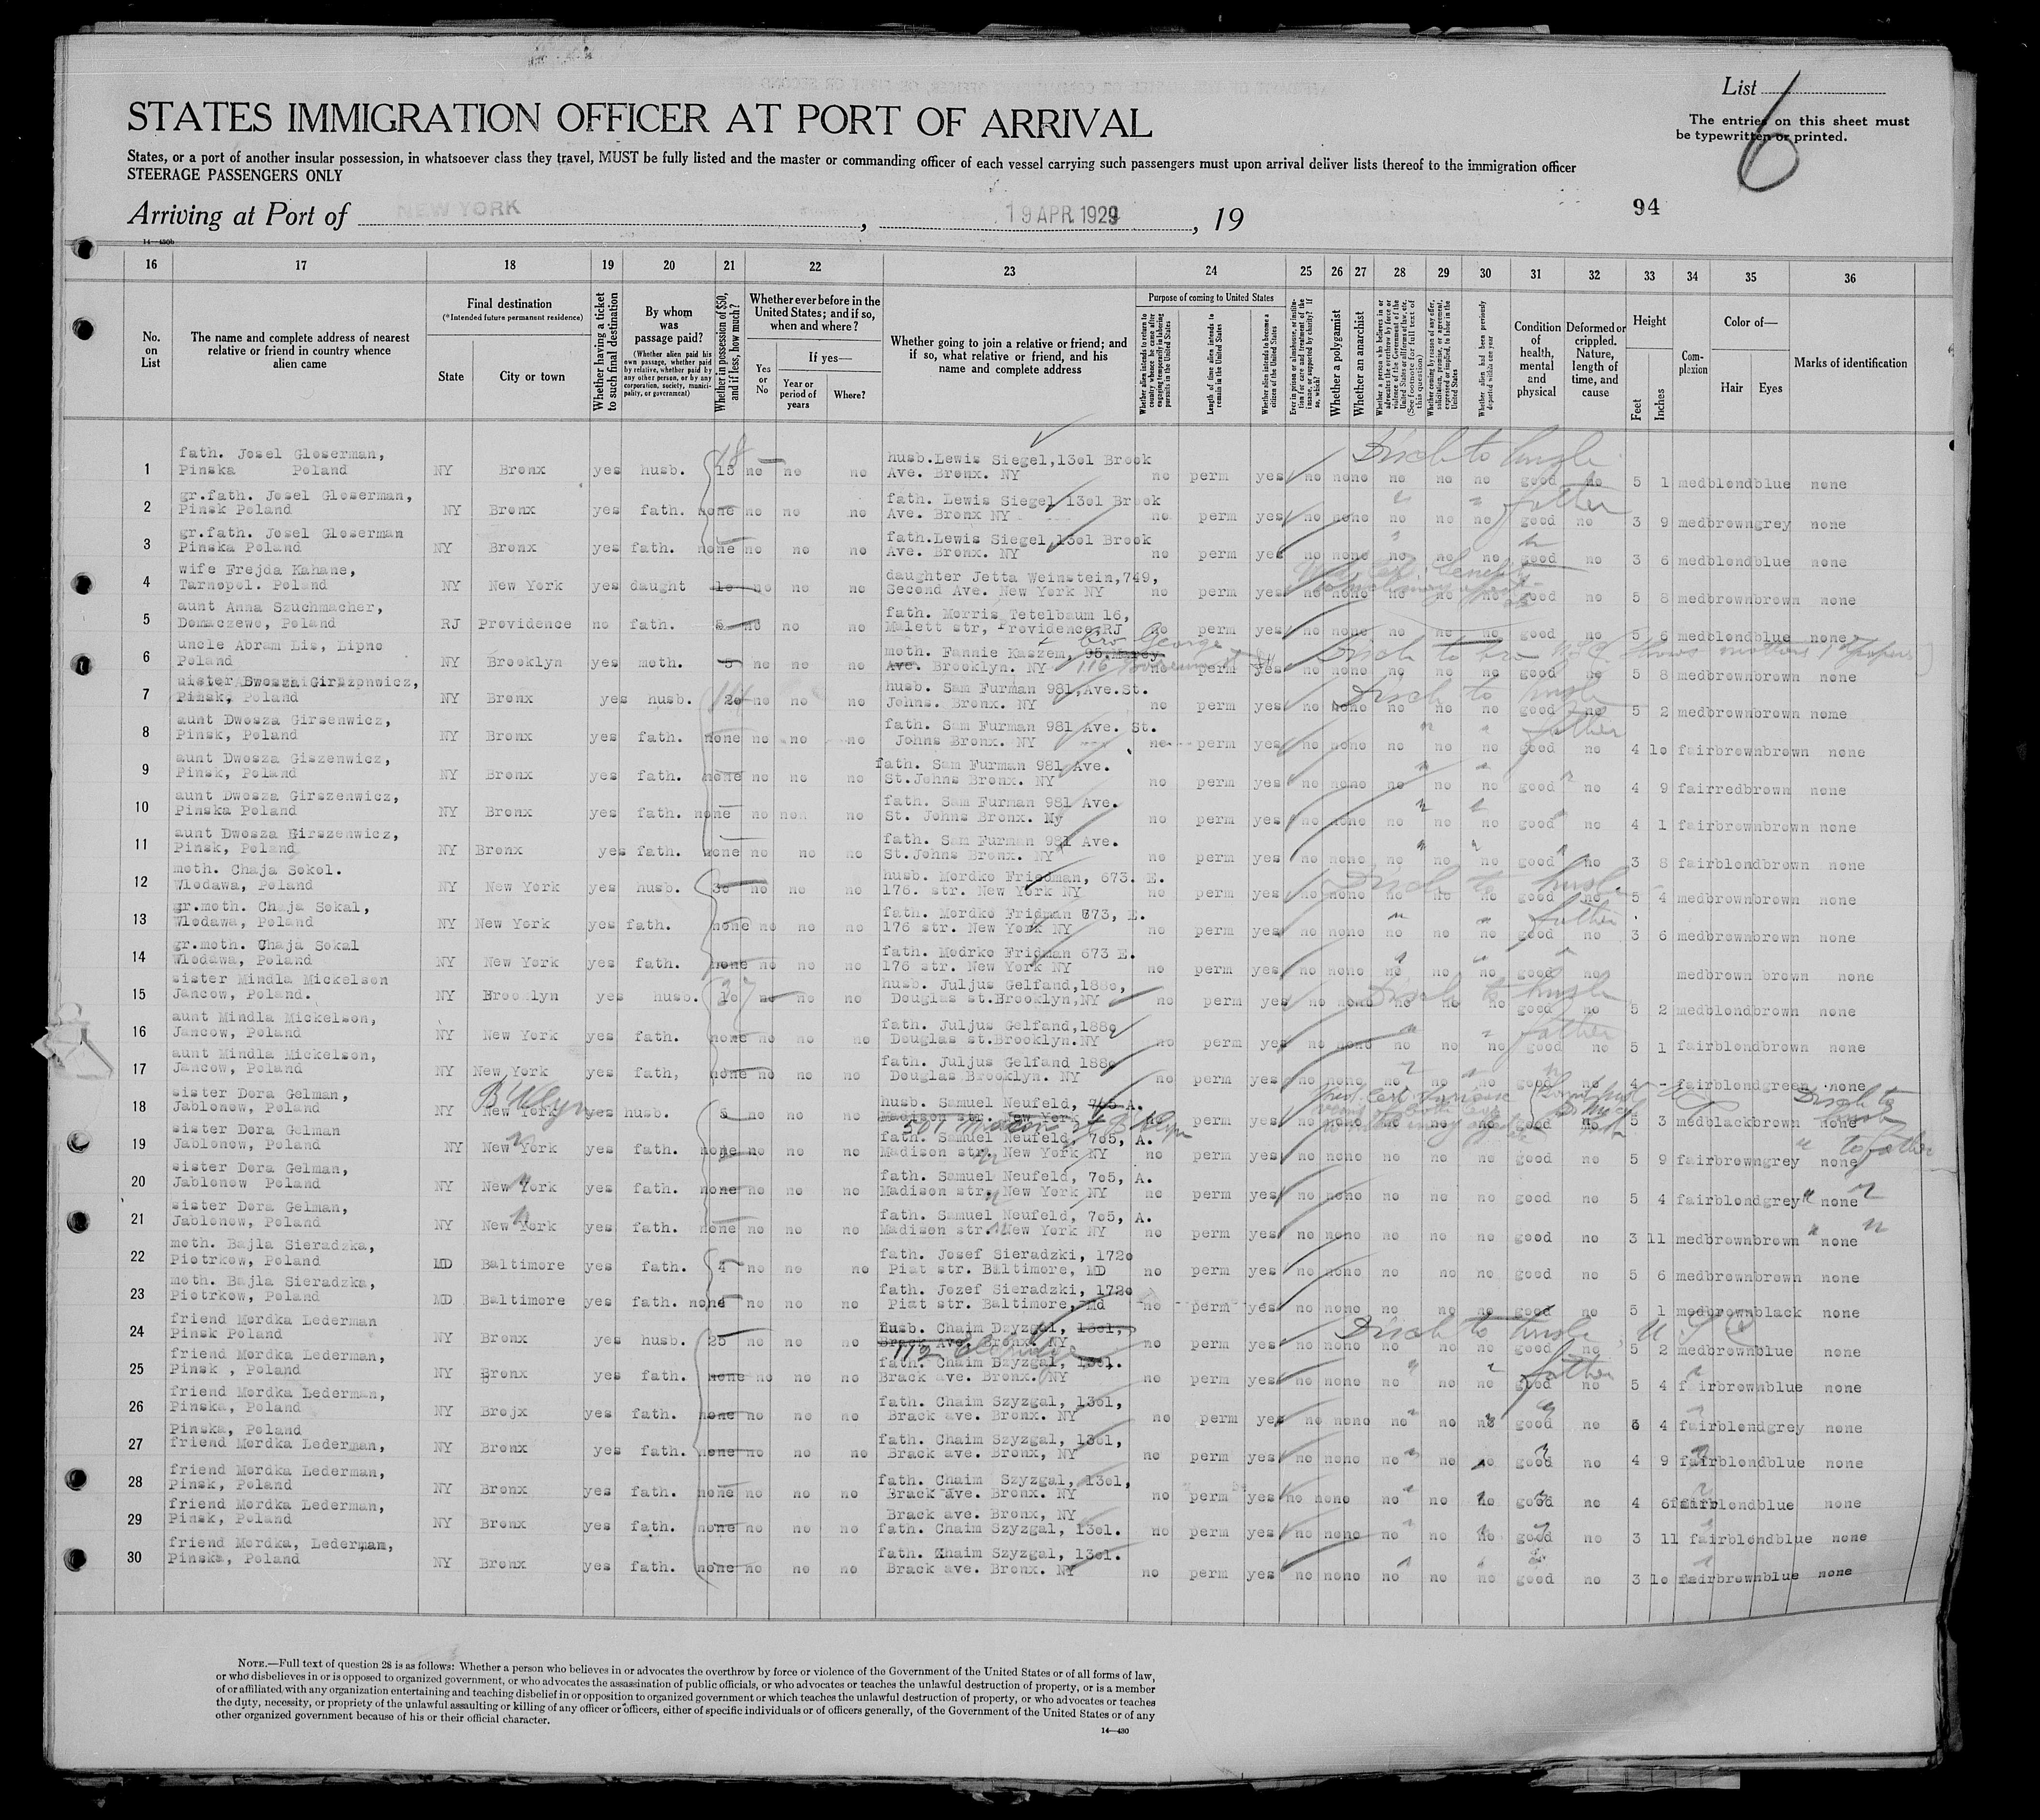 List
6
The entries on this sheet must
be typewritten or printed.
STATES IMMIGRATION OFFICER AT PORT OF ARRIVAL
States, or a port of another insular possession, in whatsoever class they travel, MUST be fully listed and the master or commanding officer of each vessel carrying such passengers must upon arrival deliver lists thereof to the immigration officer
STEERAGE PASSENGERS ONLY
94
Arriving at Port of NEW YORK, 19 APR. 1929, 19
14—430b
16 17 18 19 20 21 22 23 24 25 26 27 28 29 30 31 32 33 34 35 36
No. on List
The name and complete address of nearest relative or friend in country whence alien came
Final destination
(*Intended future permanent residence)
State
City or town
Whether having a ticket to such final destination
By whom was passage paid?
(Whether alien paid his own passage, whether paid by relative, whether paid by any other person, or by any corporation, society, municipality, or government)
Whether in possession of $50, and if less, how much?
Whether ever before in the United States; and if so, when and where?
Yes or No
If yes—
Year or period of years
Where?
Whether going to join a relative or friend; and if so, what relative or friend, and his name and complete address
Purpose of coming to United States
Whether alien intends to return to country whence he came after engaging temporarily in laboring pursuits in the United States
Length of time alien intends to remain in the United States
Whether alien intends to become a citizen of the United States
Ever in prison or almshouse, or institution for care and treatment of the insane, or supported by charity? If so, which?
Whether a polygamist
Whether an anarchist
Whether a person who believes in or advocates the overthrow by force or violence of the Government of the United States or all forms of law, etc. (See footnote for full text of this question)
Whether coming by reason of any offer, solicitation, promise, or agreement, expressed or implied, to labor in the United States
Whether alien had been previously deported within one year
Condition of health, mental and physical
Deformed or crippled. Nature, length of time, and cause
Height
Feet
Inches
Complexion
Color of—
Hair
Eyes
Marks of identification
Disch to husb
fath. Josel Gloserman,
1 Pinska Poland NY Bronx yes husb. 15 18 no no no husb.Lewis Siegel,13o1 Brook
Ave. Bronx. NY no perm yes no no no no no no good no 5 1 med blond blue none
gr.fath. Josel Gloserman,
2 Pinsk Poland NY Bronx yes fath. none no no no fath. Lewis Siegel 13o1 Brook
Ave. Bronx NY no perm yes no no no no no no good no 3 9 med brown grey none
father
gr.fath. Josel Gloserman
3 Pinska Poland NY Bronx yes fath. none no no no fath.Lewis Siegel,13o1 Brook
Ave. Bronx. NY no perm yes no no no no no no good no 3 6 med blond blue none
wife Frejda Kahane,
4 Tarnopol. Poland NY New York yes daught 1o no no no daughter Jetta Weinstein,749,
Second Ave. New York NY no perm yes no no no no no no good no 5 8 med brown brown none
aunt Anna Szuchmacher,
5 Domaczewo, Poland RJ Providence no fath. 5 no no no fath. Morris Tetelbaum 16,
Malett str, Providence,RJ no perm yes no no no no no no good no 5 6 med blond blue none
bro George
uncle Abram Lis, Lipno
6 Poland NY Brooklyn yes moth. 5 no no no moth. Fannie Kaszem, 95.Marey
Ave. Brooklyn. NY no perm yes no no no no no no good no 5 8 med brown brown none
Disch to bro
sister Dwosza Girszonwicz,
7 Pinsk, Poland NY Bronx yes husb. 2o no no no husb. Sam Furman 981,Ave.St.
Johns. Bronx. NY no perm yes no no no no no no good no 5 2 med brown brown nome
Disch to husb
aunt Dwosza Girsenwicz,
8 Pinsk, Poland NY Bronx yes fath. none no no no fath. Sam Furman 981 Ave. St.
Johns Bronx. NY no perm yes no no no no no no good no 4 1o fair brown brown none
father
aunt Dwosza Giszenwicz,
9 Pinsk, Poland NY Bronx yes fath. none no no no fath. Sam Furman 981 Ave.
St.Johns Bronx. NY no perm yes no no no no no no good no 4 9 fair red brown none
aunt Dwosza Girszenwicz,
10 Pinska Poland NY Bronx yes fath. none no non no fath. Sam Furman 981 Ave.
St. Johns Bronx. Ny no perm yes no no no no no no good no 4 1 fair brown brown none
aunt Dwosza Girszenwicz,
11 Pinsk, Poland NY Bronx yes fath. none no no no fath. Sam Furman 981 Ave.
St.Johns Bronx. NY no perm yes no no no no no no good no 3 8 fair blond brown none
moth. Chaja Sokol.
12 Wlodawa, Poland NY New York yes husb. 3o no no no husb. Mordko Friedman, 673. E.
176. str. New York NY no perm yes no no no no no no good no 5 4 med brown brown none
Disch to husb
gr.moth. Chaja Sokal,
13 Wlodawa, Poland NY New York yes fath. none no no no fath. Mordko Fridman 673, E.
176 str. New York NY no perm yes no no no no no no good no 3 6 med brown brown none
father
gr.moth. Chaja Sokal
14 Wlodawa, Poland NY New York yes fath. none no no no fath. Modrko Fridman 673 E.
176 str. New York NY no perm yes no no no no no no good no med brown brown none
sister Mindla Mickelson
15 Jancow, Poland. NY Brooklyn yes husb. 1o no no no husb. Juljus Gelfand,188o,
Douglas st.Brooklyn,NY no perm yes no no no no no no good no 5 2 med blond brown none
Disch to husb
aunt Mindla Mickelson,
16 Jancow, Poland NY New York yes fath. none no no no fath. Juljus Gelfand,188o
Douglas st.Brooklyn.NY no perm yes no no no no no no good no 5 1 fair blond brown none
father
aunt Mindla Mickelson,
17 Jancow, Poland NY New York yes fath, none no no no fath. Juljus Gelfand 188o
Douglas Brooklyn. NY no perm yes no no no no no no good no 4 - fair blond green none
sister Dora Gelman,
18 Jablonow, Poland NY New York B'klyn yes husb. 5 no no no husb. Samuel Neufeld, 7o5 A.
Madison str. New York no perm yes no no no no no no good no 5 3 med black brown none
Disch to husb
sister Dora Gelman
19 Jablonow, Poland NY New York yes fath. none no no no fath. Samuel Neufeld, 7o5, A.
Madison str. New York NY no perm yes no no no no no no good no 5 9 fair brown grey none
to father
sister Dora Gelman,
20 Jablonow Poland NY New York yes fath. none no no no fath. Samuel Neufeld, 7o5, A.
Madison str. New York NY no perm yes no no no no no no good no 5 4 fair blond grey none
sister Dora Gelman,
21 Jablonow, Poland NY New York yes fath. none no no no fath. Samuel Neufeld, 7o5, A.
Madison str. New York NY no perm yes no no no no no no good no 3 11 med brown brown none
moth. Bajla Sieradzka,
22 Piotrkow, Poland MD Baltimore yes fath. 4 no no no fath. Josef Sieradzki, 172o
Piat str. Baltimore, MD no perm yes no no no no no no good no 5 6 med brown brown none
moth. Bajla Sieradzka,
23 Piotrkow, Poland MD Baltimore yes fath. none no no no fath. Jozef Sieradzki, 172o
Piat str. Baltimore, Md no perm yes no no no no no no good no 5 1 med brown black none
friend Mordka Lederman
24 Pinsk Poland NY Bronx yes husb. 25 no no no husb. Chaim Dzyzgal, 13o1,
Brack Ave, Bronx. NY no perm yes no no no no no no good no 5 2 med brown blue none
Disch to husb
friend Mordka Lederman,
25 Pinsk , Poland NY Bronx yes fath. none no no no fath. Chaim Bzyzgal, 13o1.
Brack ave. Bronx. NY no perm yes no no no no no no good no 5 4 fair brown blue none
father
friend Mordka Lederman,
26 Pinska, Poland NY Brojx yes fath. none no no no fath. Chaim Szyzgal, 13o1,
Brack ave. Bronx. NY no perm yes no no no no no no good no 6 4 fair blond grey none
Pinska, Poland
27 friend Mordka Lederman, NY Bronx yes fath. none no no no fath. Chaim Szyzgal, 13o1,
Brack ave. Bronx, NY no perm yes no no no no no no good no 4 9 fair blond blue none
friend Mordka Lederman,
28 Pinsk, Poland NY Bronx yes fath. none no no no fath. Chaim Szyzgal, 13o1,
Brack ave. Bronx. NY no perm yes no no no no no no good no 4 6 fair blond blue none
friend Mordka Lederman,
29 Pinsk, Poland NY Bronx yes fath. none no no no Brack ave. Bronx, NY
fath. Chaim Szyzgal, 13o1. no perm yes no no no no no no good no 3 11 fair blond blue none
friend Mordka, Lederman,
30 Pinska, Poland NY Bronx yes fath. none no no no fath. Khaim Szyzgal, 13o1.
Brack ave. Bronx. NY no perm yes no no no no no no good no 3 1o fair brown blue none
NOTE.—Full text of question 28 is as follows: Whether a person who believes in or advocates the overthrow by force or violence of the Government of the United States or of all forms of law,
or who disbelieves in or is opposed to organized government, or who advocates the assassination of public officials, or who advocates or teaches the unlawful destruction of property, or is a member
of or affiliated with any organization entertaining and teaching disbelief in or opposition to organized government or which teaches the unlawful destruction of property, or who advocates or teaches
the duty, necessity, or propriety of the unlawful assaulting or killing of any officer or officers, either of specific individuals or of officers generally, of the Government of the United States or of any
other organized government because of his or their official character.
14—430